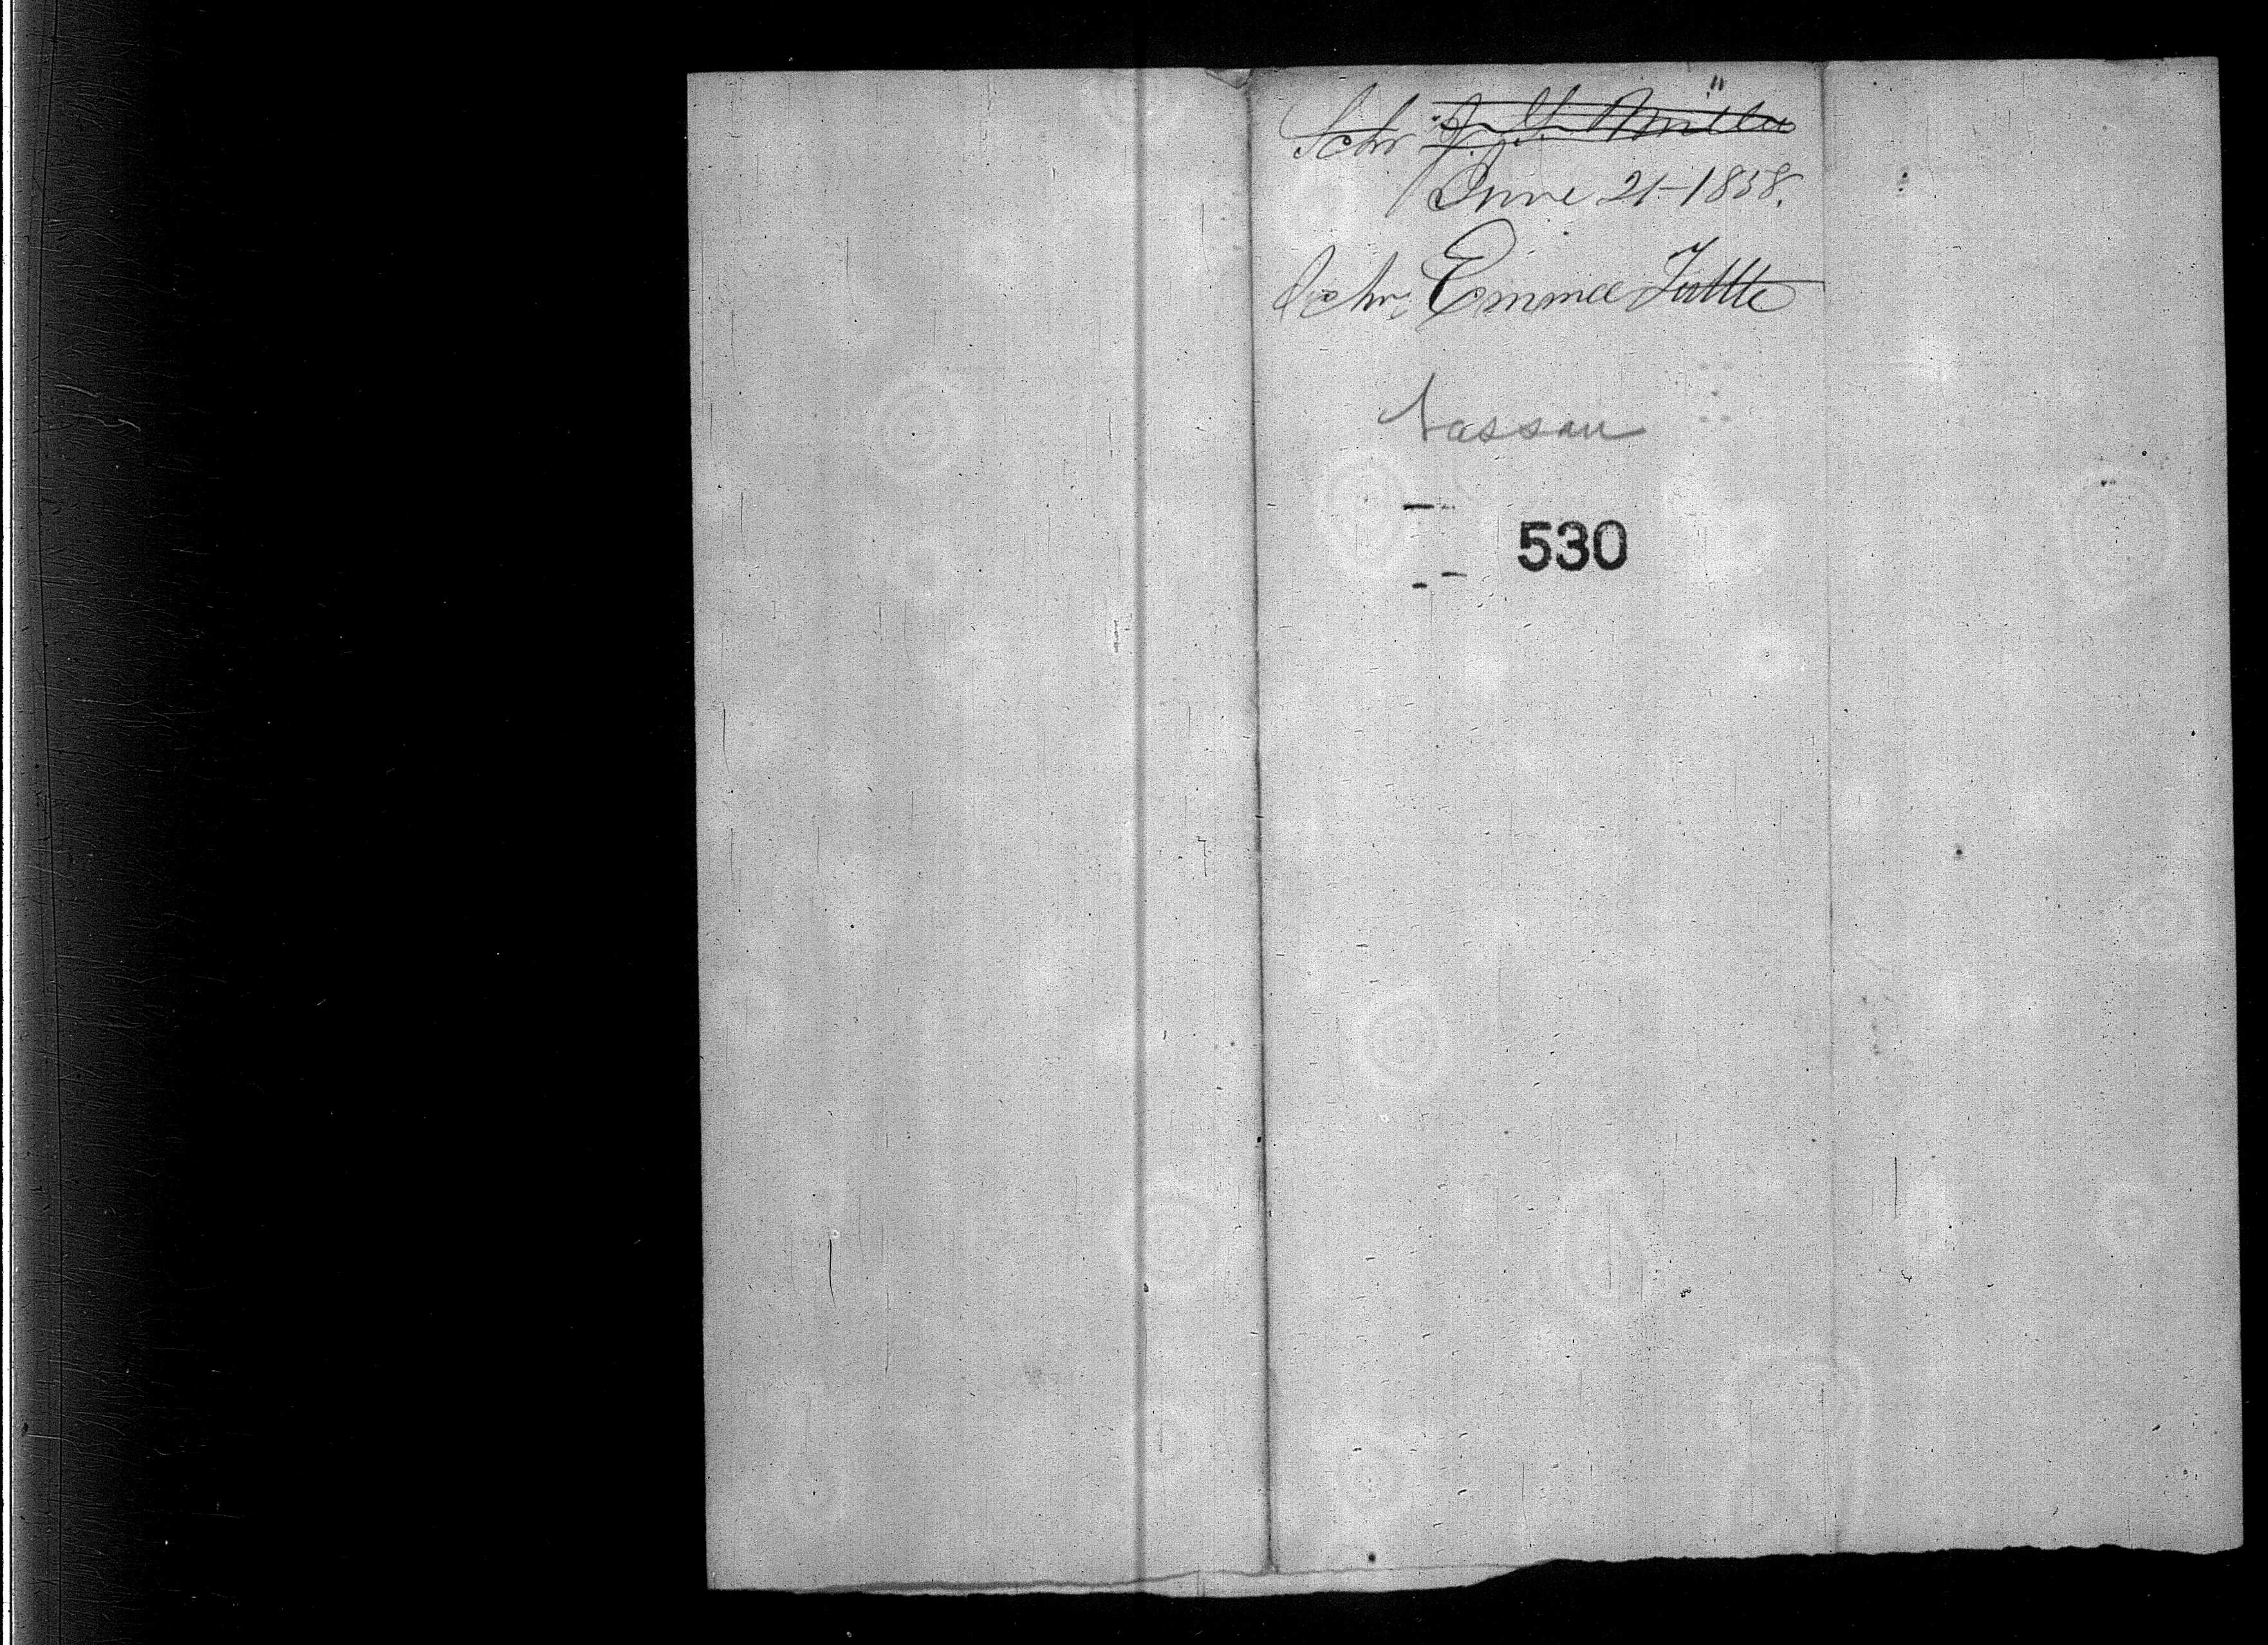 Schr
June 21-1858.
Schr. Emma Tuttle
Nassau
530